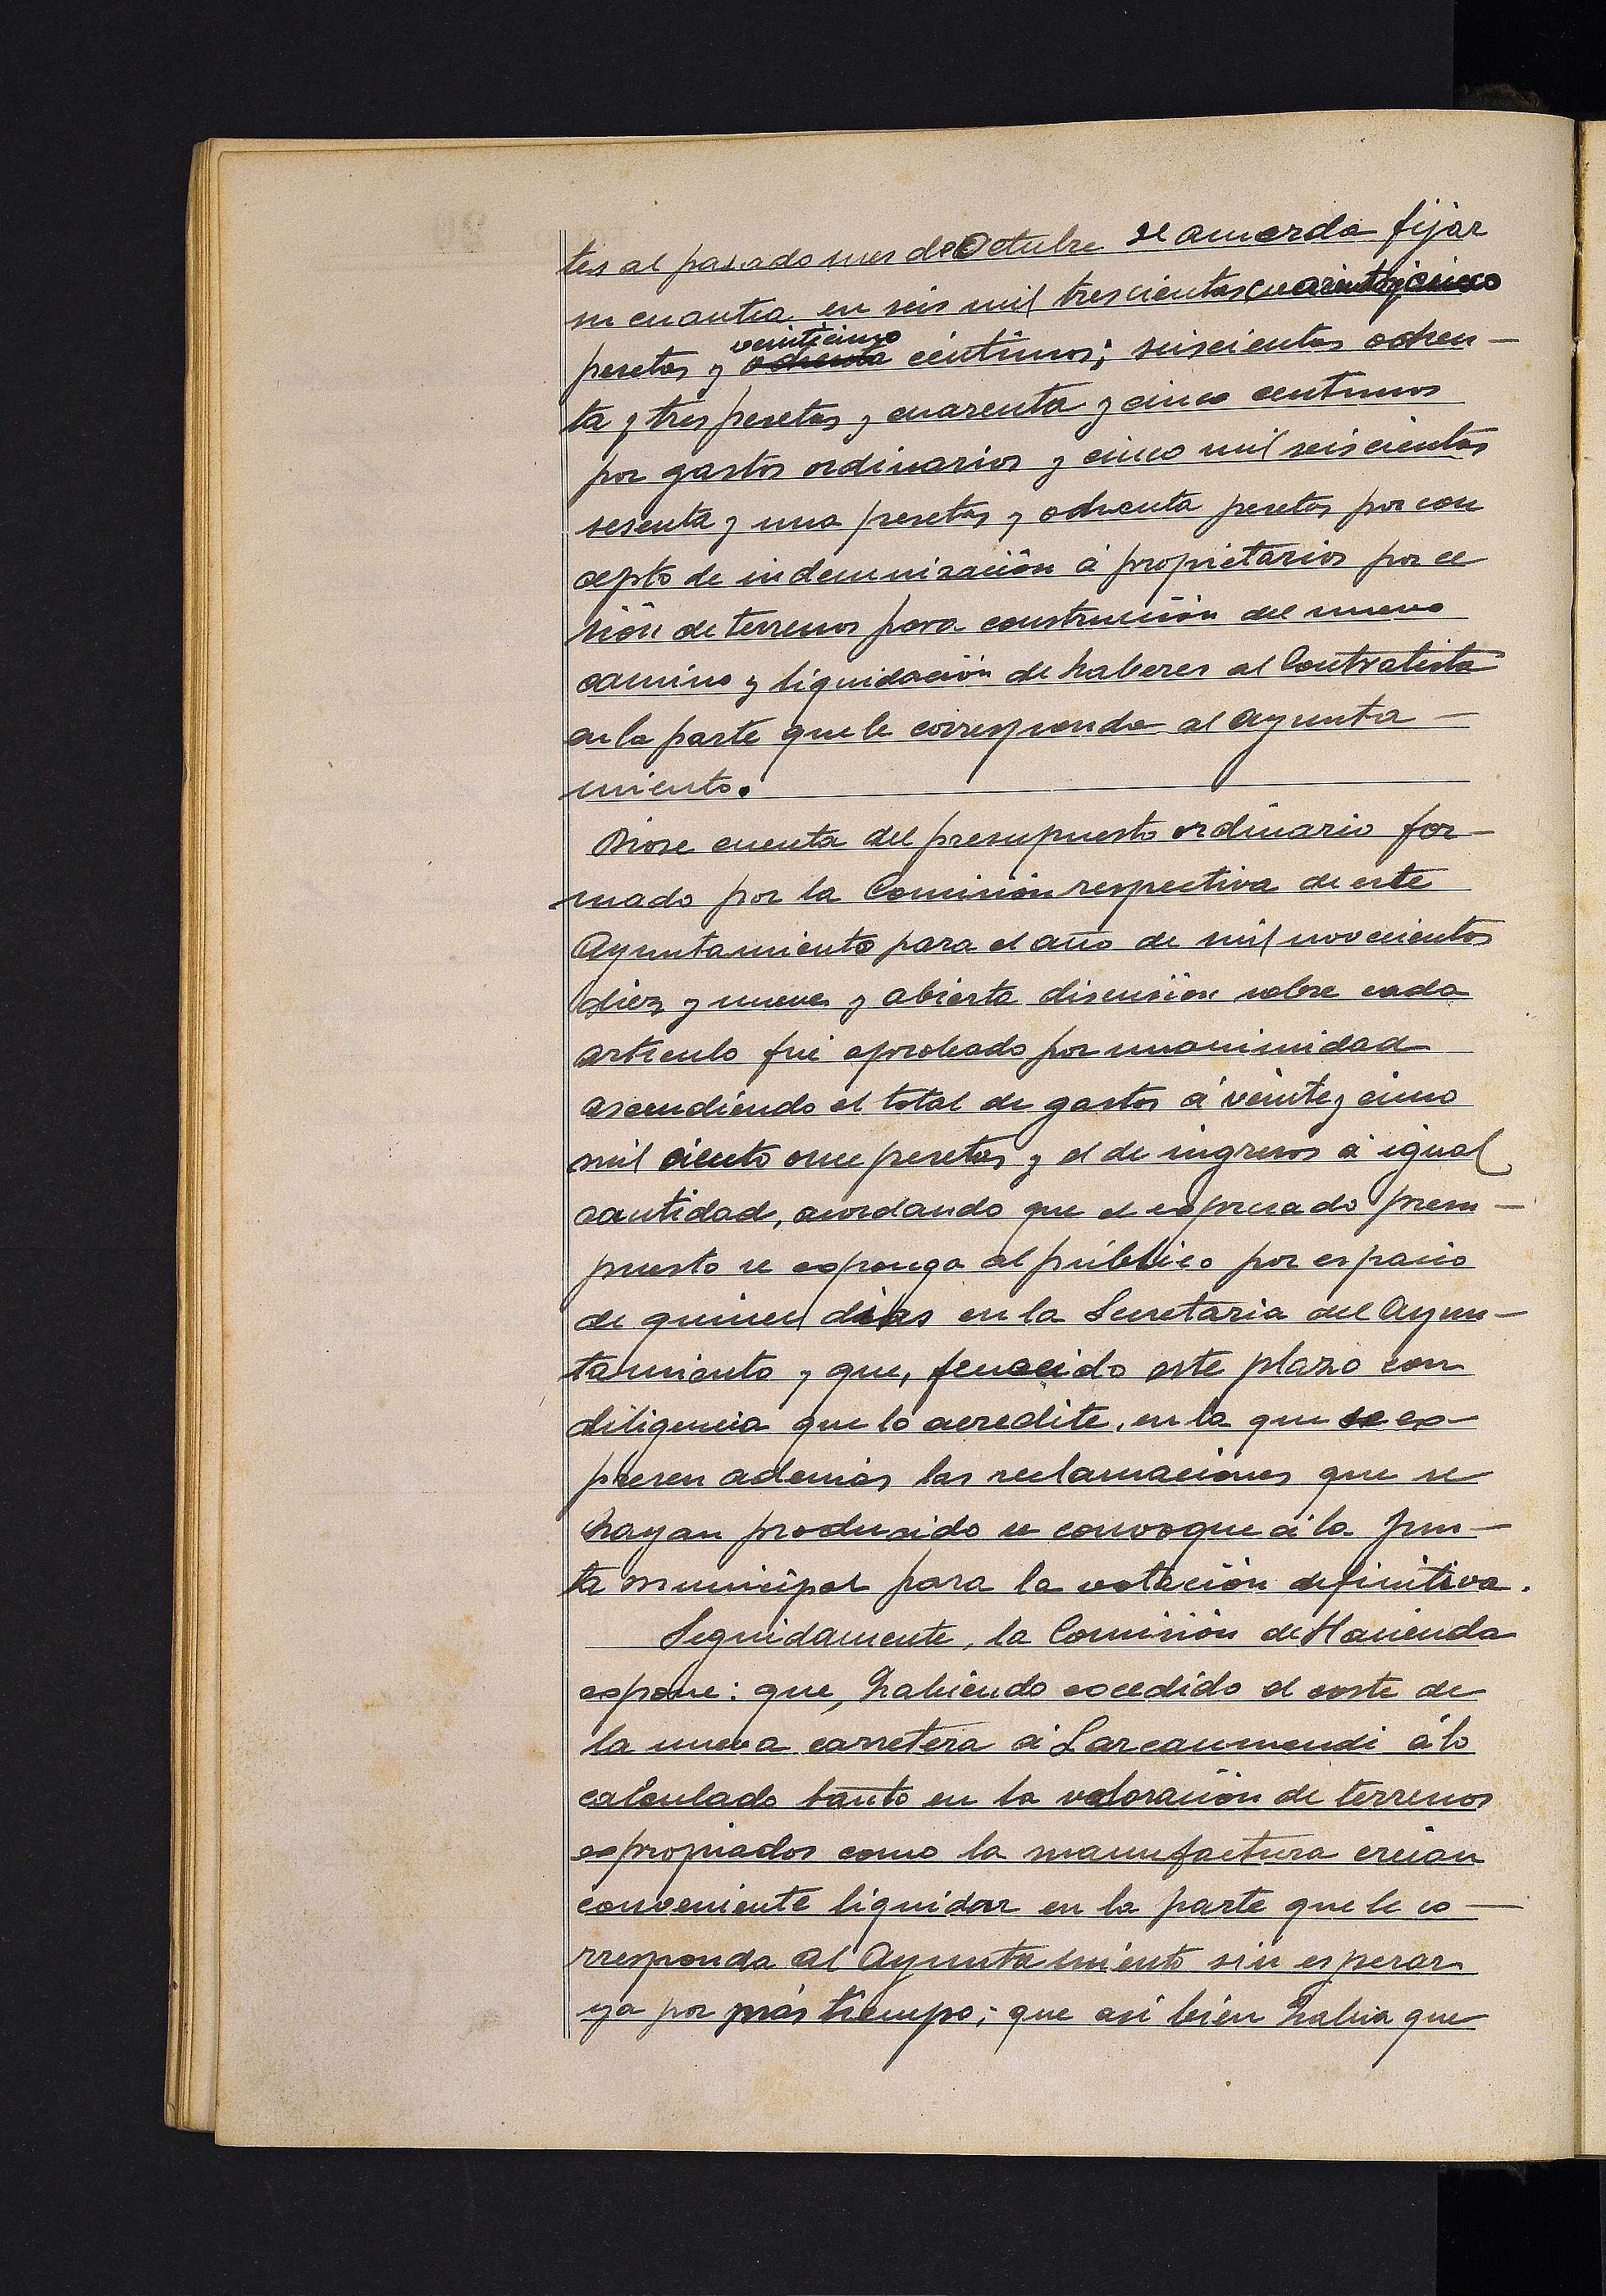 tes al pasado mes de Octubre se acuerda fijar
su cuantia en seis mil trescientas cuarenta y cinco
pesetas y veinticinco céntimos; seiscientas ochen-
ta y tres pesetas y cuarenta y cinco centimos
por gastos ordinarios y cinco mil seiscientas
sesenta y una pesetas y ochenta pesetas por con
cepto de indemnización á propietarios por ce
sión de terrenos para construcción del nuevo
camino y liquidación de haberes al Contratista
en la parte que le corresponda al Ayunta-
miento.
Diose cuenta del presupuesto ordinario for-
mado por la Comisión respectiva de este
Ayuntamiento para el año de mil novecientos
diez y nueve y abierta discusión sobre cada
artículo fué aprobado por unanimidad
ascendiendo el total de gastos á veinte y cinco
mil ciento once pesetas y el de ingresos á igual
cantidad, acordando que el expresado presu-
puesto se exponga al público por espacio
de quince dias en la Secretaria del Ayun-
tamiento y que, fenecido este plazo con
diligencia que lo acredite, en la que se ex-
presen además las reclamaciones que se
hayan producido se convoque á la Jun-
ta municipal para la votación definitiva.
Seguidamente, la Comisión de Hacienda
expone: que, habiendo excedido el coste de
la nueva carretera á Larcaumendi á lo
calculado tanto en la valoración de terrenos
expropiados como la manufactura creian
conveniente liquidar en la parte que le co-
rresponda al Ayuntamiento sin esperar
ya por más tiempo; que asi bien habia que